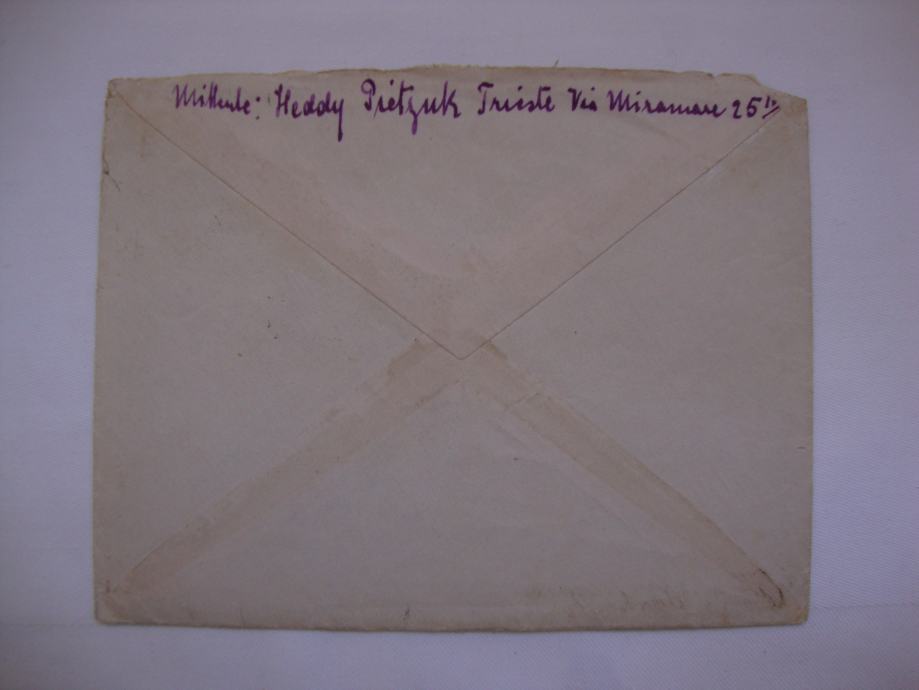 Mittente: Heddy Pietzuk Trieste Via Miramare 25